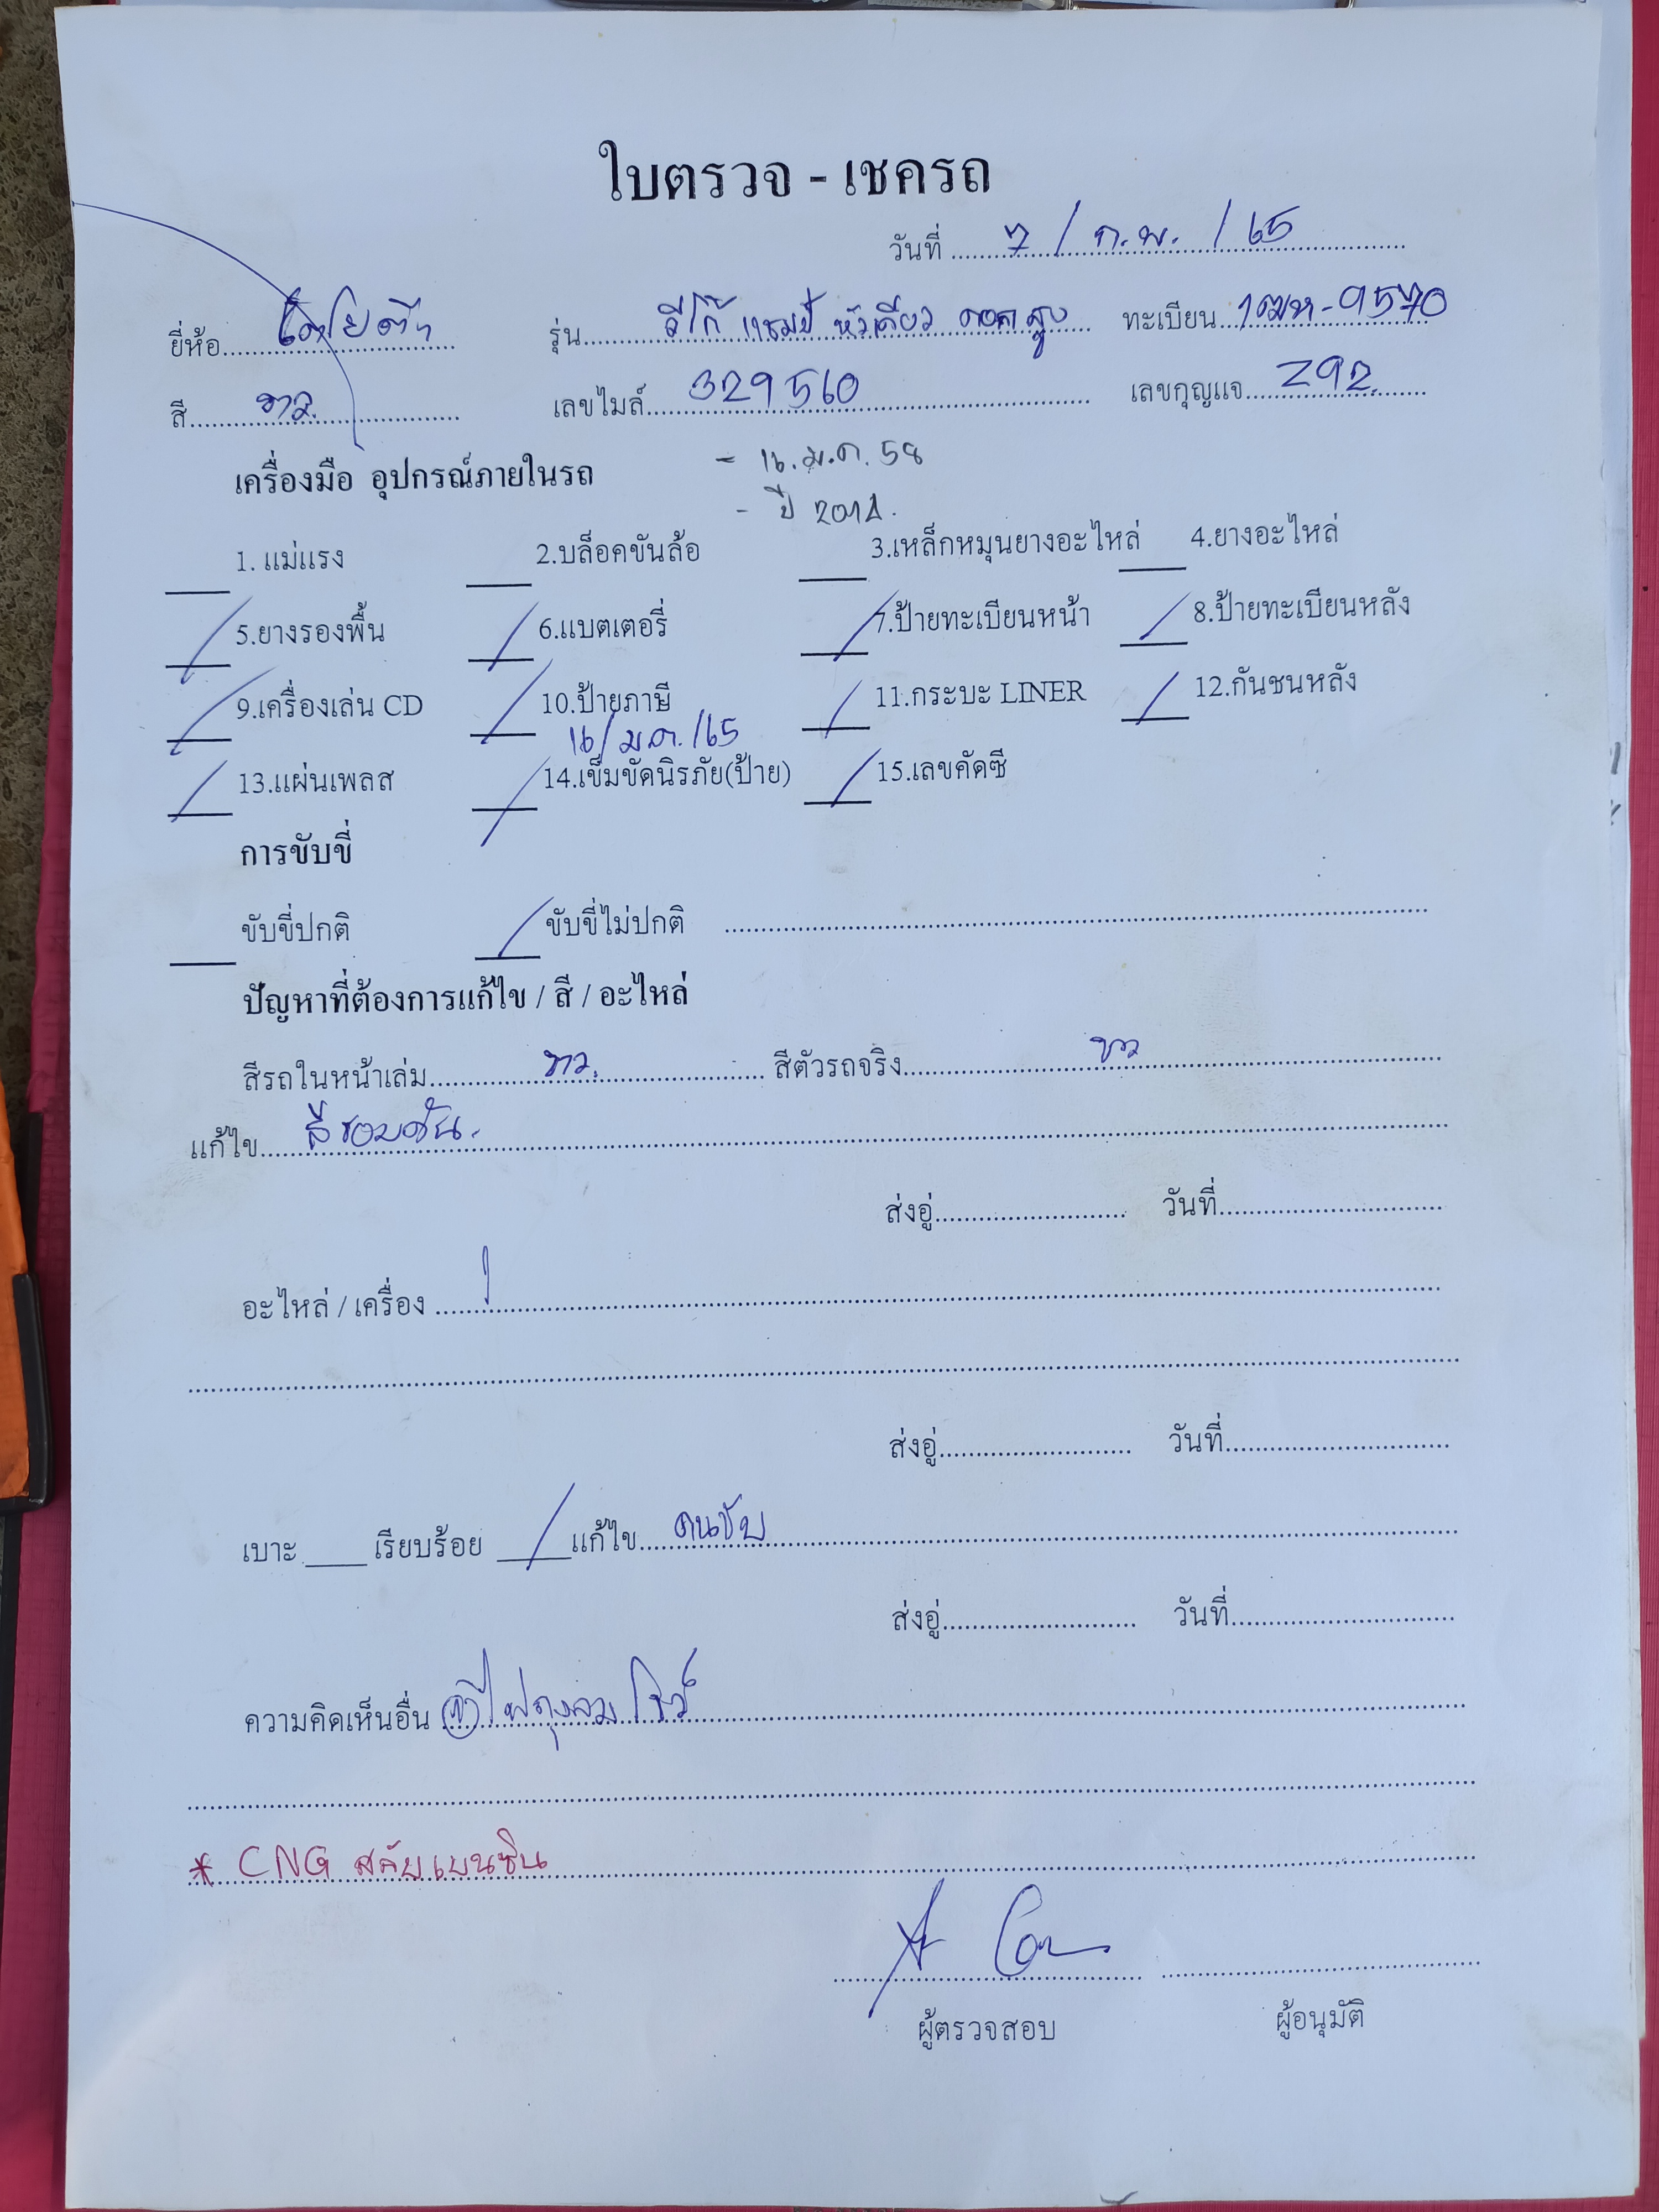 ใบตรวจ - เชครถ
วันที่ 7 / ก.พ. / 65
ยี่ห้อ โตโยต้า รุ่น วีโก้ แชมป์ หัวเดียว ตอกสูง ทะเบียน 1ฒห-9570
สี ขาว. เลขไมล์ 329560 เลขกุญแจ Z92.
เครื่องมือ อุปกรณ์ภายในรถ - 16.ม.ค. 58
- ปี 2014.
1. แม่แรง 2.บล็อคขันล้อ 3.เหล็กหมุนยางอะไหล่ 4.ยางอะไหล่
/ 5.ยางรองพื้น / 6.แบตเตอรี่ / 7.ป้ายทะเบียนหน้า / 8.ป้ายทะเบียนหลัง
/ 9.เครื่องเล่น CD / 10.ป้ายภาษี / 11.กระบะ LINER / 12.กันชนหลัง
16/ม.ค./65
/ 13.แผ่นเพลส / 14.เข็มขัดนิรภัย(ป้าย) / 15.เลขคัดซี
การขับขี่
ขับขี่ปกติ / ขับขี่ไม่ปกติ
ปัญหาที่ต้องการแก้ไข / สี / อะไหล่
สีรถในหน้าเล่ม ขาว. สีตัวรถจริง ขาว
แก้ไข สีรอบคัน.
ส่งอู่ วันที่
อะไหล่ / เครื่อง
ส่งอู่ วันที่
เบาะ เรียบร้อย / แก้ไข คนขับ
ส่งอู่ วันที่
ความคิดเห็นอื่น ไฟถุงลมโชว์
* CNG สลับเบนซิน
ผู้ตรวจสอบ ผู้อนุมัติ